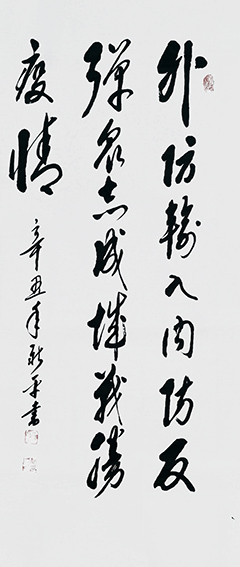 外防输入内防反
弹众志成城战胜
疫情
辛丑年新平书